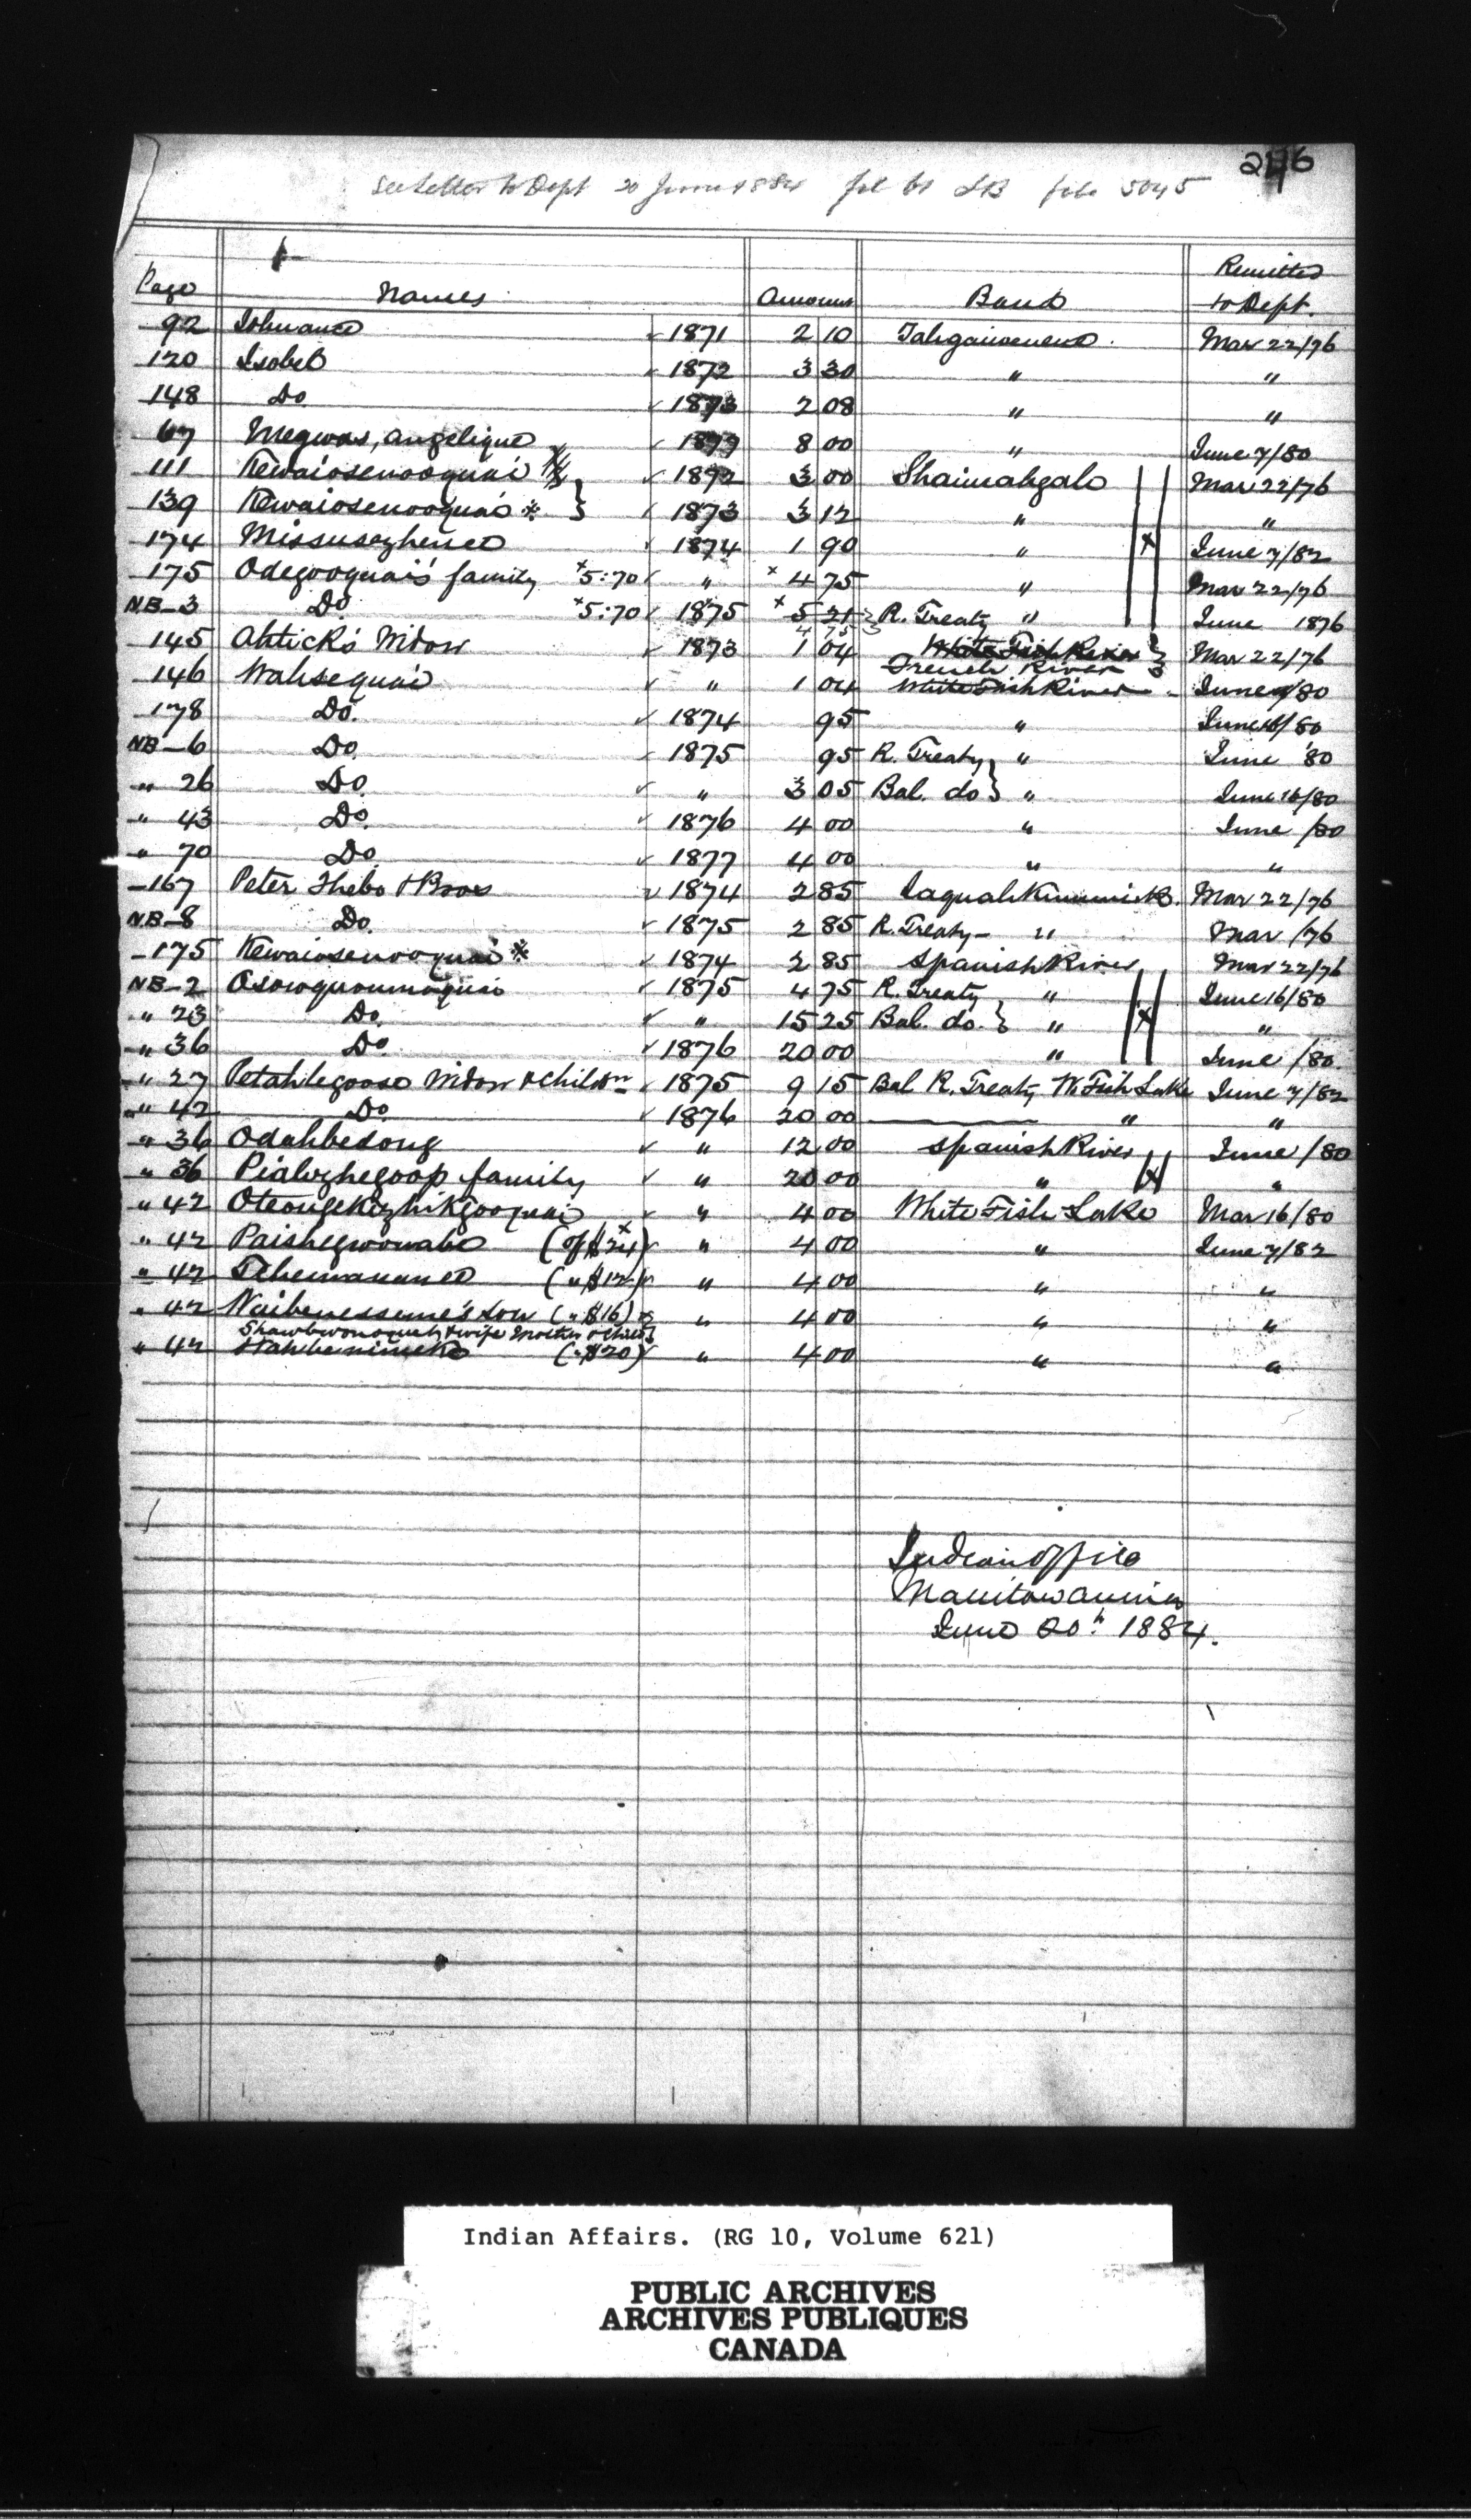 276
See Letter to Dept 20 June 1884 fol 61 LB file 5045
Page Names Amount Band Remitted to Dept.
92 1871 2 10 Tahgaiwenene. Mar 22/76
120 Isobel 1872 3 30 " "
148 Do 1873 2 08 " "
67 Megwas, Angelique 1879 8 00 " June 7/80
111 Kewaiosenooquai 1872 3 00 Shaimahgah Mar 22/76
139 Kewaiosenooquai * } 1873 3 12 " "
174 1874 1 90 " x June 7/82
175 Odegooquai's family +5:70 " x 4 75 " Mar 22/76
NB-3 Do +5:70 1875 x 5 21 R. Treaty " June 1876
145 Ahtick's Widow 1873 1 04 White Fish River } Mar 22/76
French River
146 Wahsequai " 1 04 White Fish River June /80
178 Do. 1874 95 " June 16/80
NB-6 Do 1875 95 R. Treaty } " June '80
" 26 Do. " 3 05 Bal. do } " June 16/80
" 43 Do. 1876 4 00 " June /80
" 70 Do 1877 4 00 " "
167 Peter Thebo & Bros 1874 2 85 Mar 22/76
NB-8 Do. 1875 2 85 R. Treaty - " Mar /76
175 Kewaiosenooquai * 1874 2 85 Spanish River Mar 22/76
NB-2 1875 4 75 R. Treaty " June 16/80
" 23 Do. " 15 25 Bal. do. } " x "
" 36 Do. 1876 20 00 " June /80.
" 27 Petahlegoose Widow & Childn 1875 9 15 Bal R. Treaty W. Fish Lake June 7/82
" 42 Do. 1876 20 00 " "
" 36 Odahbedong " 12 00 Spanish River June /80
" 36 family " 20 00 " x "
" 42 " 4 00 White Fish Lake Mar 16/80
" 42 Paishegwonabe (of $24) " 4 00 " June 7/82
" 42 (" $12) " 4 00 " "
" 42 son (" $16) " 4 00 " "
& wife Mother & Child }
" 42 (" $20) " 4 00 " "
Indian Office
Manitowaning
June 20th 1884.
Indian Affairs. (RG 10, Volume 621)
PUBLIC ARCHIVES
ARCHIVES PUBLIQUES
CANADA